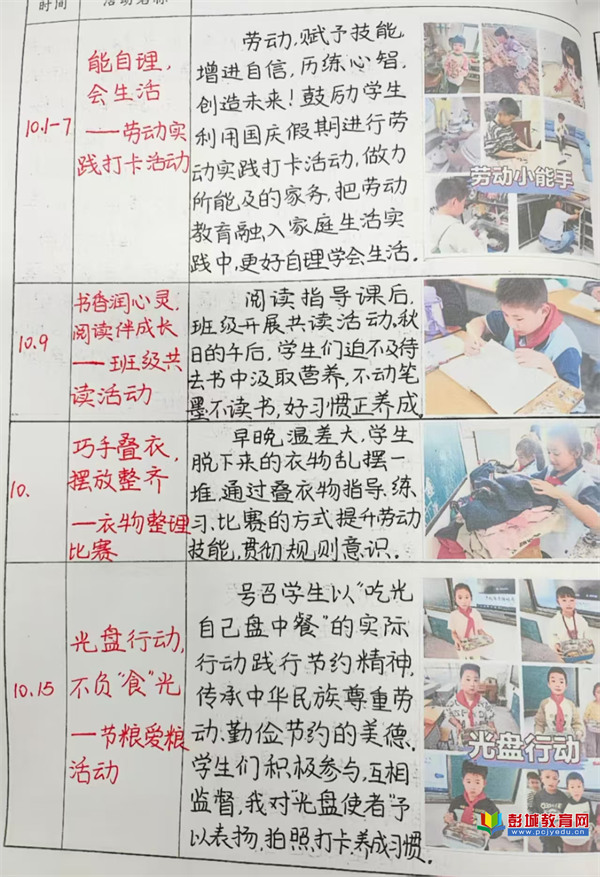 时间
活动名称
10.1-7
能自理,
会生活
——劳动实
践打卡活动
劳动,赋予技能,
增进自信,历练心智,
创造未来!鼓励学生
利用国庆假期进行劳
动实践打卡活动,做力
所能及的家务,把劳动
教育融入家庭生活实
践中,更好自理学会生活.
劳动小能手
10.9
书香润心灵,
阅读伴成长
—班级共
读活动
阅读指导课后,
班级开展共读活动,秋
日的午后,学生们迫不及待
去书中汲取营养,不动笔
墨不读书,好习惯正养成.
10.
巧手叠衣,
摆放整齐
—衣物整理
比赛
早晚,温差大,学生
脱下来的衣物乱摆一
堆,通过叠衣物指导、练
习、比赛的方式提升劳动
技能,贯彻规则意识.
10.15
光盘行动,
不负“食”光
—节粮爱粮
活动
号召学生以“吃光
自己盘中餐”的实际
行动践行节约精神,
传承中华民族尊重劳
动、勤俭节约的美德.
学生们积极参与,互相
监督,我对“光盘使者”予
以表扬,拍照打卡养成习惯.
光盘行动
彭城教育网
www.pcjyedu.cn